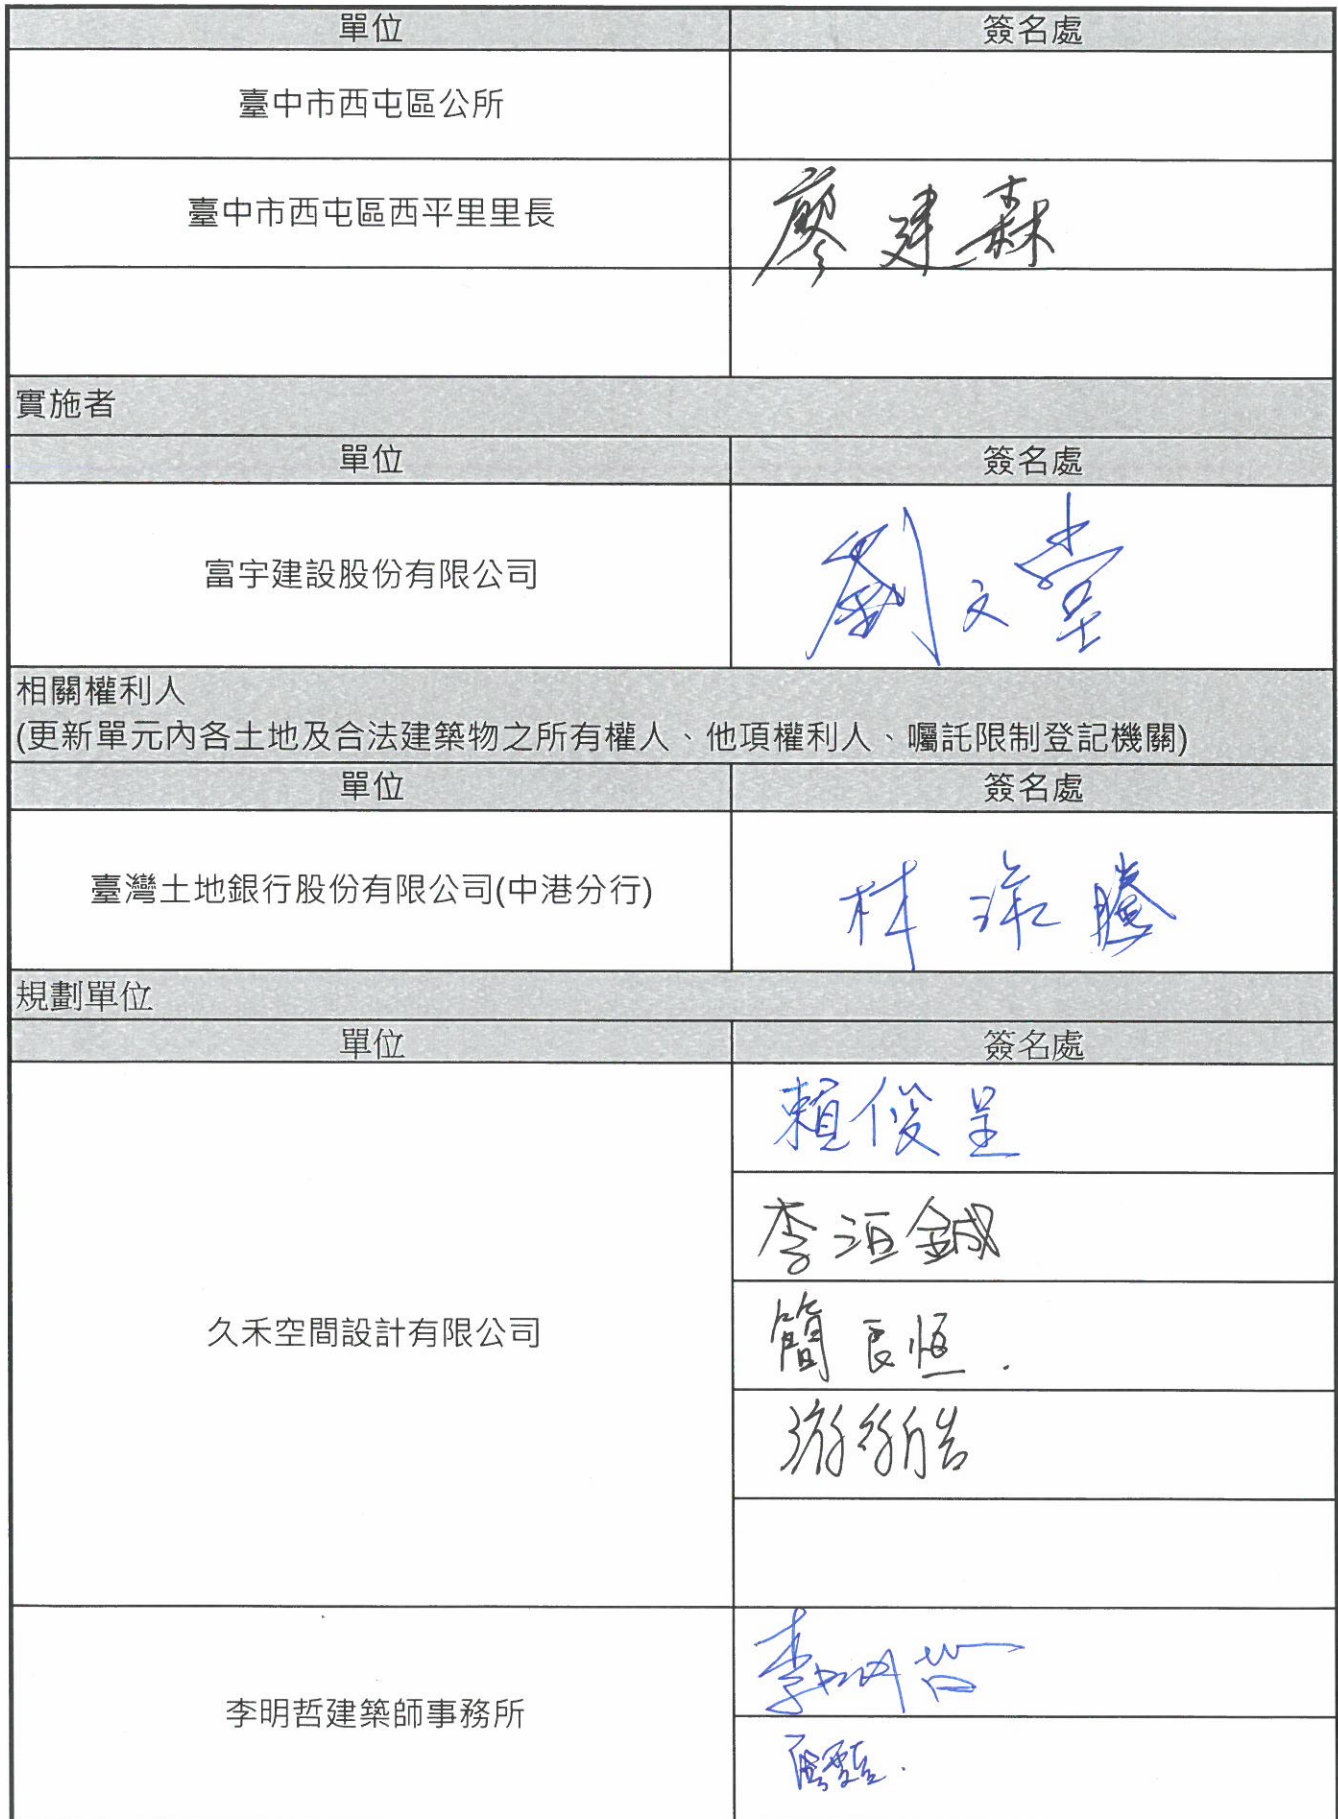 單位 簽名處
臺中市西屯區公所
臺中市西屯區西平里里長 廖建森
實施者
單位 簽名處
富宇建設股份有限公司 劉文堂
相關權利人
(更新單元內各土地及合法建築物之所有權人、他項權利人、囑託限制登記機關)
單位 簽名處
臺灣土地銀行股份有限公司(中港分行) 林 騰
規劃單位
單位 簽名處
賴俊呈
李洹鋮
久禾空間設計有限公司
簡良恆.
游 皓
李明哲
李明哲建築師事務所